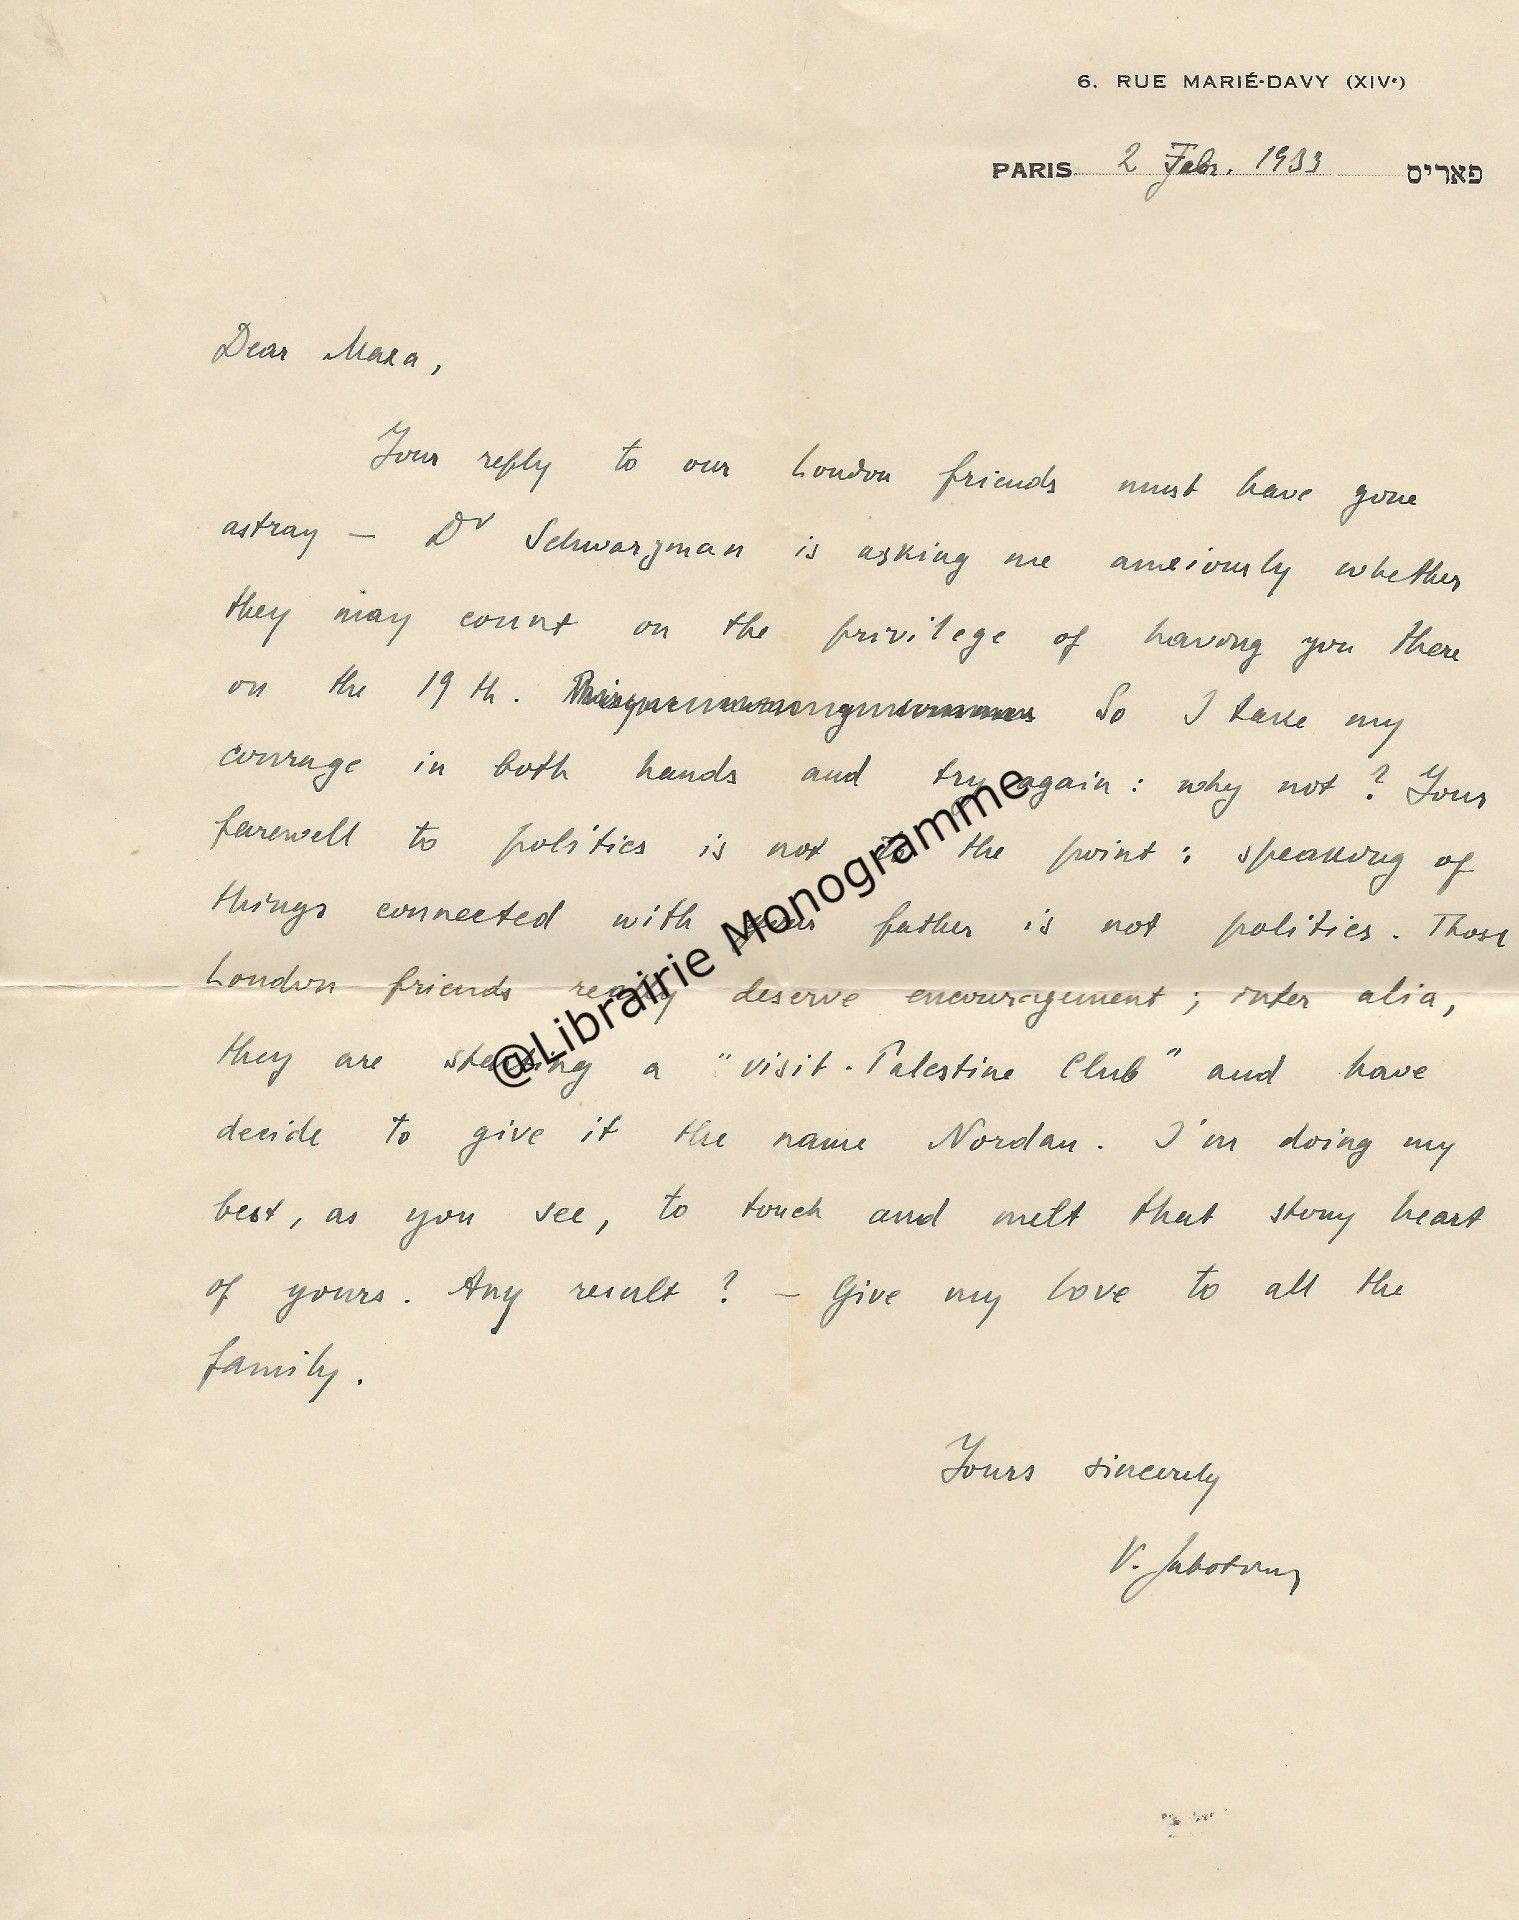 6. RUE MARIÉ-DAVY (XIVe)
PARIS 2 Febr. 1933 פאריס
Dear Maxa,
Your reply to our London friends must have gone
astray — Dr Schwarzman is asking me anxiously whether
they may count on the privilege of having you there
on the 19th. So I take my
courage in both hands and try again: why not? Your
farewell to politics is not to the point: speaking of
things connected with your father is not politics. Those
London friends really deserve encouragement; inter alia,
they are starting a "visit-Palestine Club" and have
decide to give it the name Nordau. I'm doing my
best, as you see, to touch and melt that stony heart
of yours. Any result? — Give my love to all the
family.
Yours sincerely
V. Jabotinsky
@Librairie Monogramme